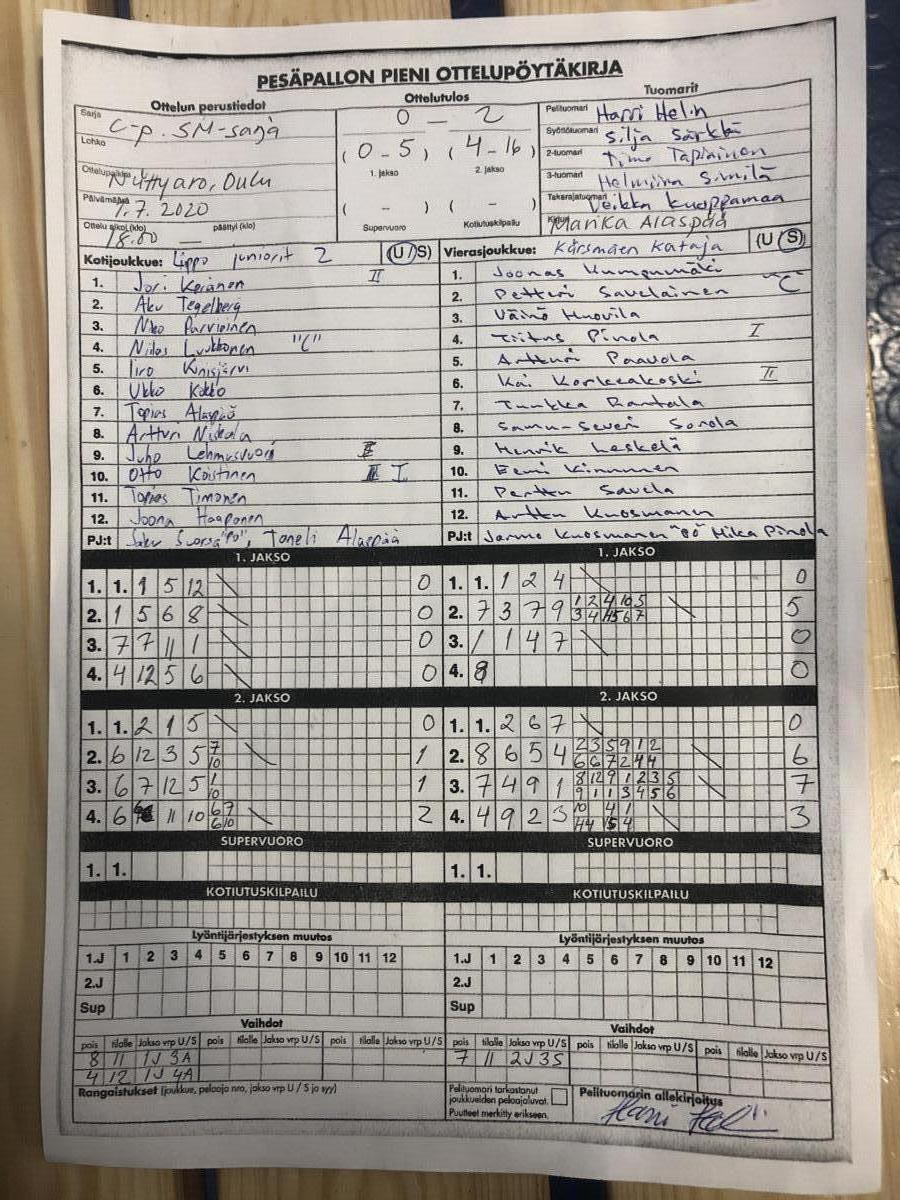 PESÄPALLON PIENI OTTELUPÖYTÄKIRJA
Ottelun perustiedot
Sarja C-p. SM-sarja
Lohko
Ottelupaikka Niittyaro, Oulu
Päivämäärä 7.7.2020
Ottelu alkoi (klo) 18.00 — päättyi (klo)
Ottelutulos
0 — 2
(0-5) (4-16)
1. jakso 2. jakso
( - ) ( - )
Supervuoro Kotiutuskilpailu
Tuomarit
Pelituomari Harri Helin
Syöttötuomari Silja Särkkä
2-tuomari Timo Tapiainen
3-tuomari Helmiina Similä
Takarajatuomari Veikka Kuoppamaa
Kirjuri Marika Alaspää
Kotijoukkue: Lippo juniorit 2 (U/S)
1. Jori Keränen II
2. Aku Tegelberg
3. Niko Parviainen
4. Niilas Luukkonen "C"
5. Iiro Kinisjärvi
6. Ukko Kokko
7. Topias Alaspää
8. Artturi Niskala
9. Juho Lehmusvuori
10. Otto Koistinen I
11. Topias Timonen
12. Joona Haaponen
PJ:t Saku Suorsa "PJ", Taneli Alaspää
Vierasjoukkue: Kärsmäen Kataja (U/S)
1. Joonas Kumpumäki
2. Petteri Savelainen C
3. Väinö Huovila
4. Tiitus Pinola I
5. Artturi Paavola
6. Kai Korkeakoski II
7. Tuukka Rantala
8. Samu-Severi Sorola
9. Henrik Leskelä
10. Eemi Kinnunen
11. Perttu Savela
12. Arttu Kuosmanen
PJ:t Jarmo Kuosmanen Mika Pinola
1. JAKSO
1. 1. 1 5 12 0
2. 1 5 6 8 0
3. 7 7 11 1 0
4. 4 12 5 6 0
1. JAKSO
1. 1. 1 2 4 0
2. 7 3 7 9 1 2 4 10 5 5
3 4 11 5 6 7
3. 1 1 4 7 0
4. 8 0
2. JAKSO
1. 1. 2 1 5 0
2. 6 12 3 5 7 1
10
3. 6 7 12 5 1 1
10
4. 6 11 10 6 7 2
6 10
2. JAKSO
1. 1. 2 6 7 0
2. 8 6 5 4 2 3 5 9 1 2 6
6 6 7 2 4 4
3. 7 4 9 1 8 12 9 1 2 3 5 7
9 1 1 3 4 5 6
4. 4 9 2 3 10 4 1 3
SUPERVUORO
1. 1.
SUPERVUORO
1. 1.
KOTIUTUSKILPAILU
KOTIUTUSKILPAILU
Lyöntijärjestyksen muutos
1.J 1 2 3 4 5 6 7 8 9 10 11 12
2.J
Sup
Lyöntijärjestyksen muutos
1.J 1 2 3 4 5 6 7 8 9 10 11 12
2.J
Sup
Vaihdot
pois tilalle Jakso vrp U/S pois tilalle Jakso vrp U/S pois tilalle Jakso vrp U/S
8 11 1J 3A
4 12 1J 4A
Vaihdot
pois tilalle Jakso vrp U/S pois tilalle Jakso vrp U/S pois tilalle Jakso vrp U/S
7 11 2J 3S
Rangaistukset (joukkue, pelaaja nro, jakso vrp U / S ja syy)
Pelituomari tarkastanut
joukkueiden pelaajaluvat.
Puutteet merkitty erikseen.
Pelituomarin allekirjoitus
Harri Helin